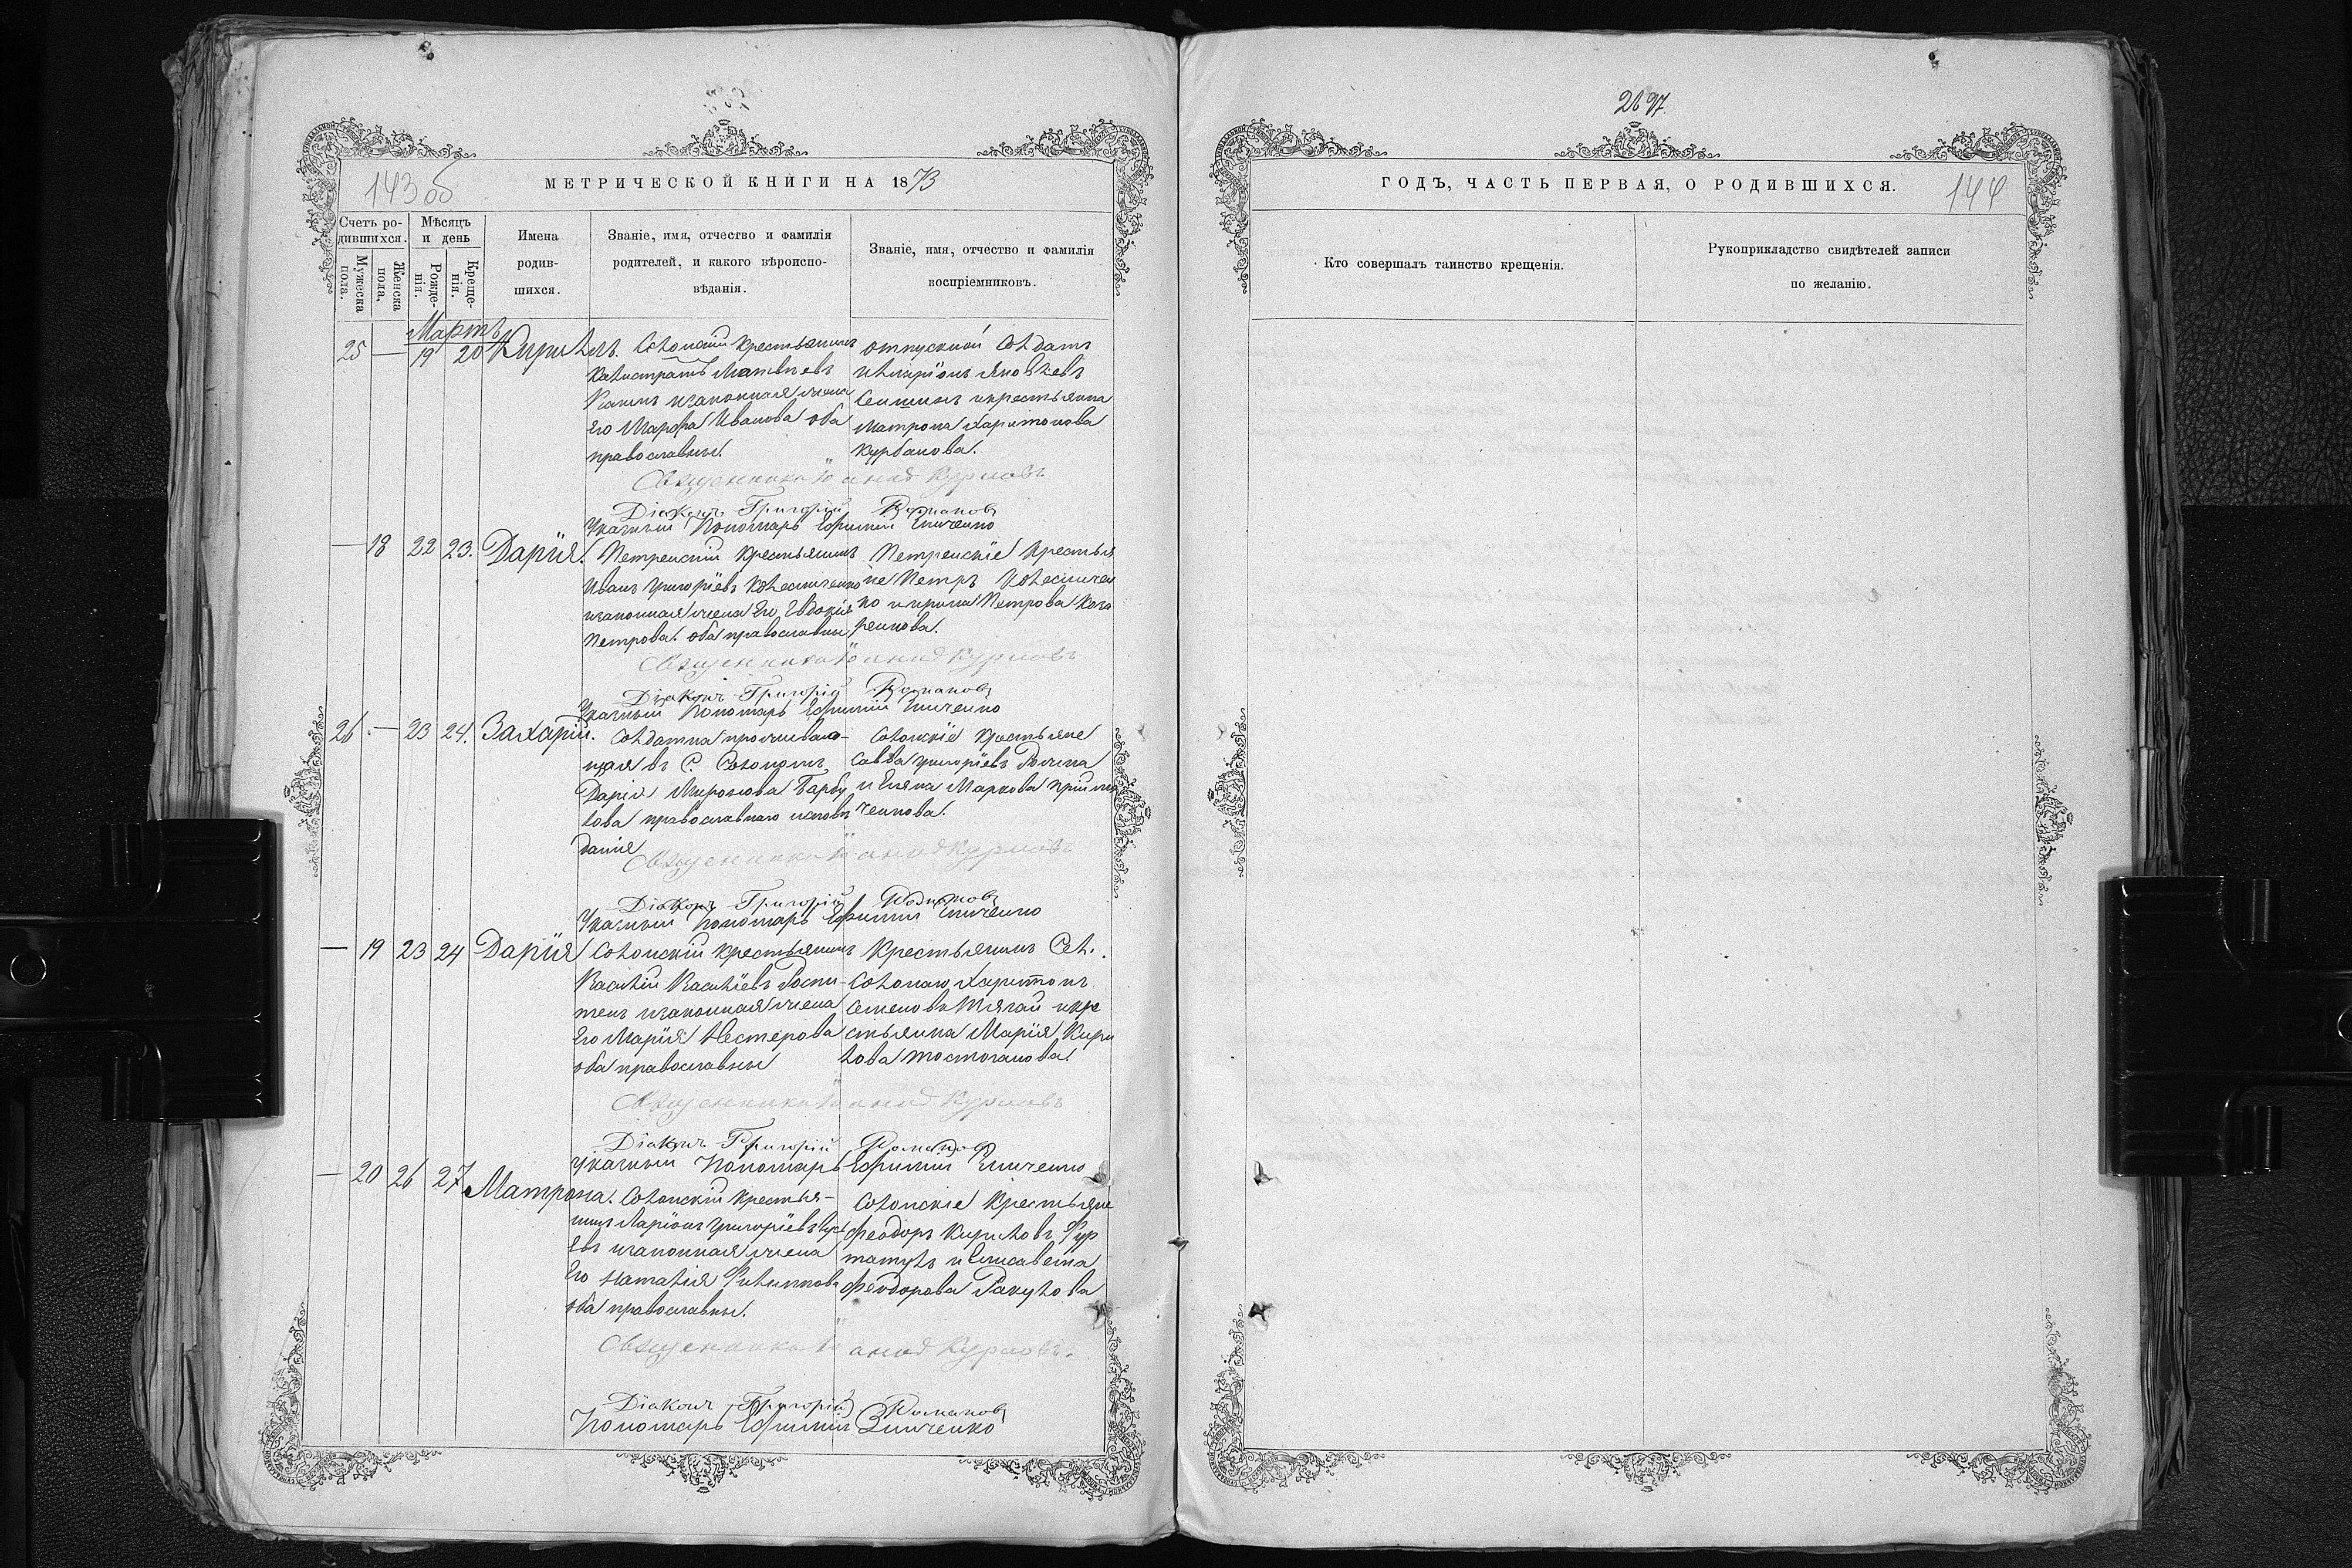 143 об
МЕТРИЧЕСКОЙ КНИГИ НА 1873
Счетъ ро-
дившихся.
Мужеска
пола.
Женска
пола.
Мѣсяцъ
и день
Рожде-
нія.
Креще-
нія.
Имена
родив-
шихся.
Званіе, имя, отчество и фамилія
родителей, и какого вѣроиспо-
вѣданія.
Званіе, имя, отчество и фамилія
воспріемниковъ.
Мартъ
25 — 19 20 Кирилъ.
Солонскій крестьянинъ
Калистратъ Матвѣевъ
и законная жена
его Марфа Иванова оба
православные.
отпускной Солдатъ
Иларіонъ Яковлевъ
и крестьянка
Матрона Харитонова
Курбанова.
Священникъ Іоанн Курловъ
Діаконъ Григорій Романовъ
Указный Пономарь Ефимій Зинченко
— 18 22 23. Дарія.
Петренскій крестьянинъ
Иванъ Григоріевъ Колесниченко
и законная жена его Евдокія
Петрова. оба православны
Петренскіе крестья
не Петръ Колесничен
ко и Ирина Петрова
Священникъ Іоанн Курловъ
Діаконъ Григорій Романовъ
Указный Пономарь Ефимій Зинченко
26 — 23 24. Захарій.
Солдатка проживаю-
щая въ С. Солономъ
Дарія Миронова Барбу
лова православнаго исповѣ
данія
Солонскіе крестьяне
Савва Григоріевъ
и Маркова Прійма
ченкова.
Священникъ Іоанн Курловъ
Діаконъ Григорій Романовъ
Указный Пономарь Ефимій Зинченко
— 19 23 24 Дарія
Солонскій крестьянинъ
Василій Василіевъ
и законная жена
его Марія Нестерова
оба православные
Крестьянинъ Сел.
Солонаго Харитонъ
Семеновъ Тягай и кре
стьянка Марія Кири
лова Тостоганова.
Священникъ Іоанн Курловъ
Діаконъ Григорій Романовъ
Указный Пономарь Ефимій Зинченко
— 20 26 27 Матрона.
Солонскій крестья-
нинъ Ларіонъ Григоріевъ
и законная жена
его Наталія Филиппова
оба православны.
Солонскіе крестьяне
Феодоръ Кириловъ Фур
и Елисавета
Феодорова Ракулова
Священникъ Іоанн Курловъ.
Діаконъ Григорій Романовъ
Пономарь Ефимій Зинченко
2897
ГОДЪ, ЧАСТЬ ПЕРВАЯ, О РОДИВШИХСЯ.
144
Кто совершалъ таинство крещенія.
Рукоприкладство свидѣтелей записи
по желанію.